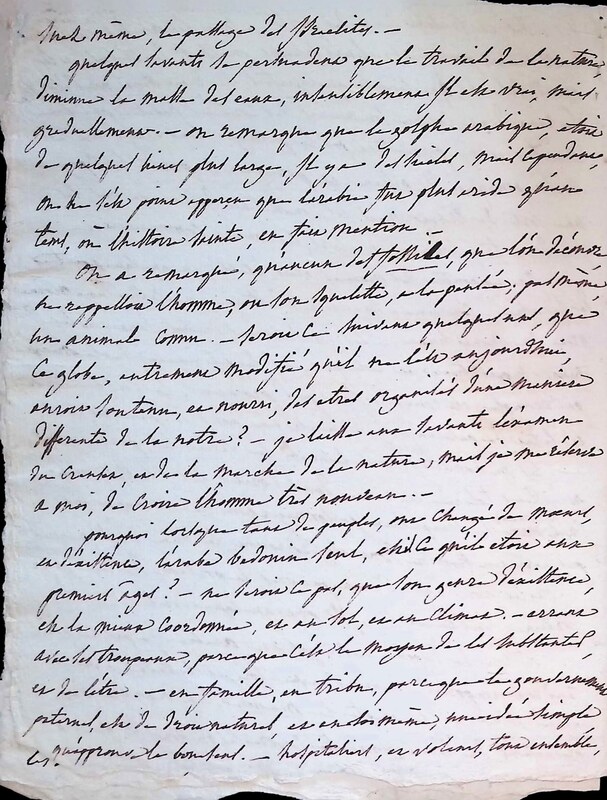 Suez même, le passage des Israelites. —
quelques savants se persuadent que le travail de la nature,
diminue la masse des eaux, insensiblement Il est vrai, mais
graduellement. — on remarque que le golphe arabique, etoit
de quelques lieues plus large, Il y a des siecles, mais cependant,
on ne s'est point apperçu que l'arabie fut plus aride qu'au
tems, où l'histoire sainte, en fait mention. —
On a remarqué, qu'aucun des fossiles, que l'on découvre
ne rappelloit l'homme, ou son squelette, a la pensée. pas même
un animale connu. — seroit ce suivant quelques uns, que
Ce globe, autrement modifié qu'il ne l'est aujourdhui,
auroit soutenu, et nourri, des etres organisés d'une maniere
differente de la notre? — je laisse aux savants l'examen
du et de la marche de la nature, mais je me réserve
a moi, de croire l'homme très nouveau. —
pourquoi lorsque tant de peuples, ont changé de mœurs,
et d'existence, l'arabe bedouin seul, est ce qu'il etoit aux
premiers âges? — ne seroit ce pas, que son genre d'existence,
est la mieux coordonnée, et au sol, et au climat. — errant
avec ses troupeaux, parce que c'est le moyen de les substanter,
et de l'être. — en famille, en tribu, parce que le gouvernement
paternel, est de droit naturel, et en soi même, une idée simple
qu'approuve le bon sens. — hospitaliers, et voleurs, tout ensemble,